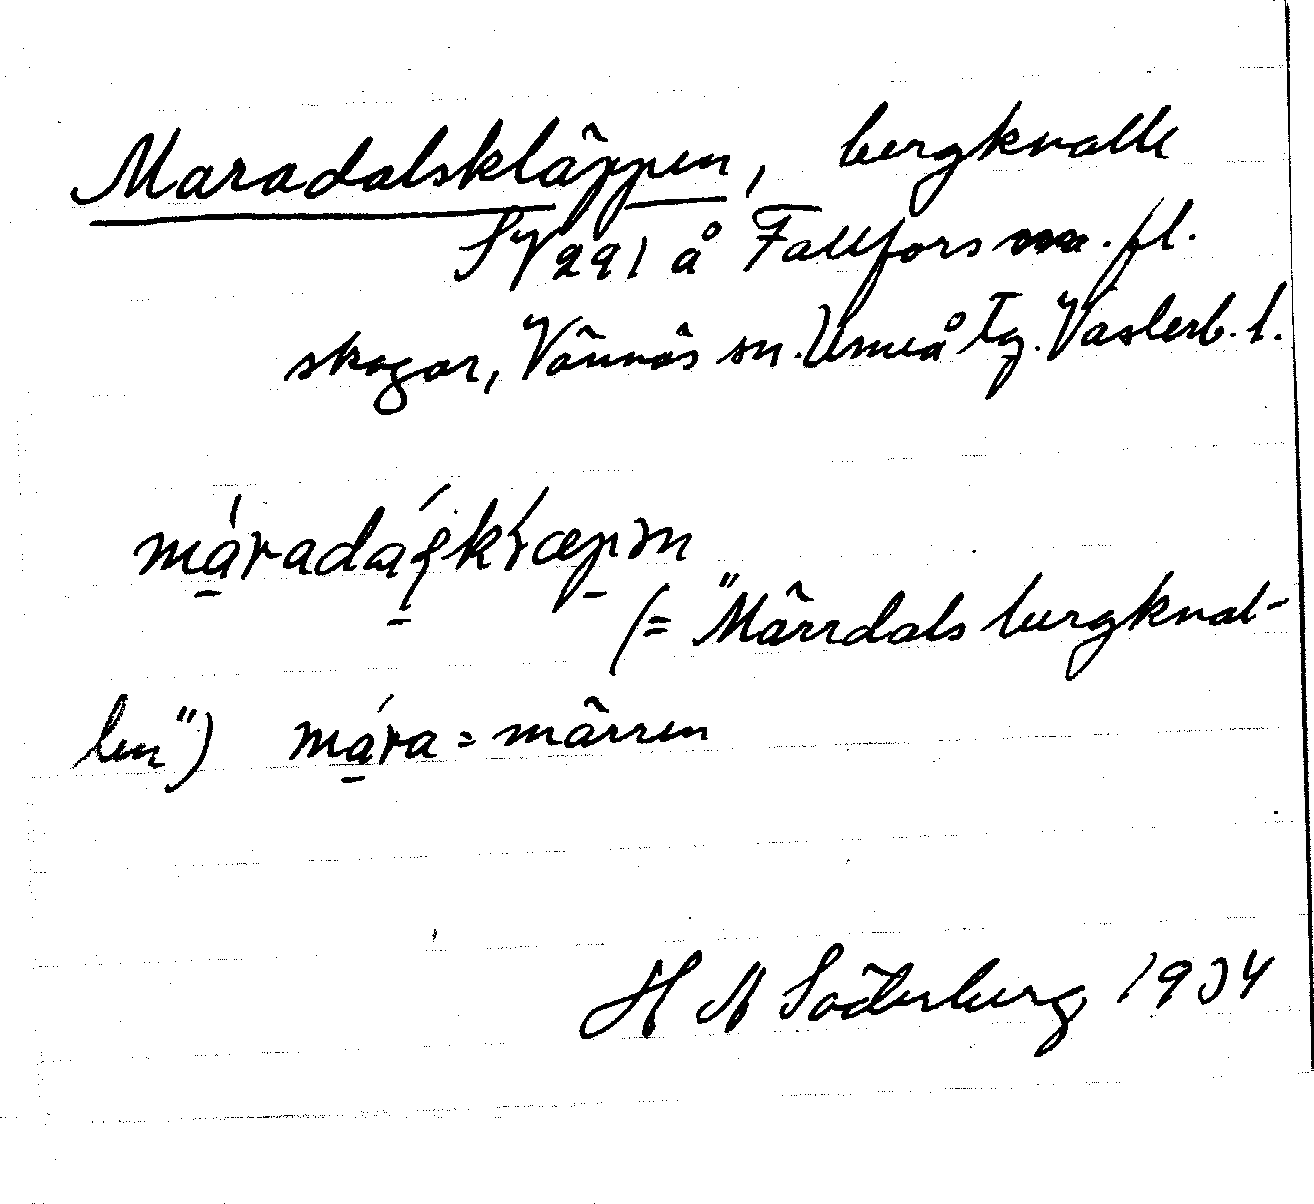 Maradalskläppen, bergknalle
SV 291 å Fallfors m. fl.
skogar, Vännäs sn. Umeå tg. Västerb. l.
máradáʃkɽæpən
(= "Märrdals bergknal-
len") mára = märren
H M Söderberg 1934